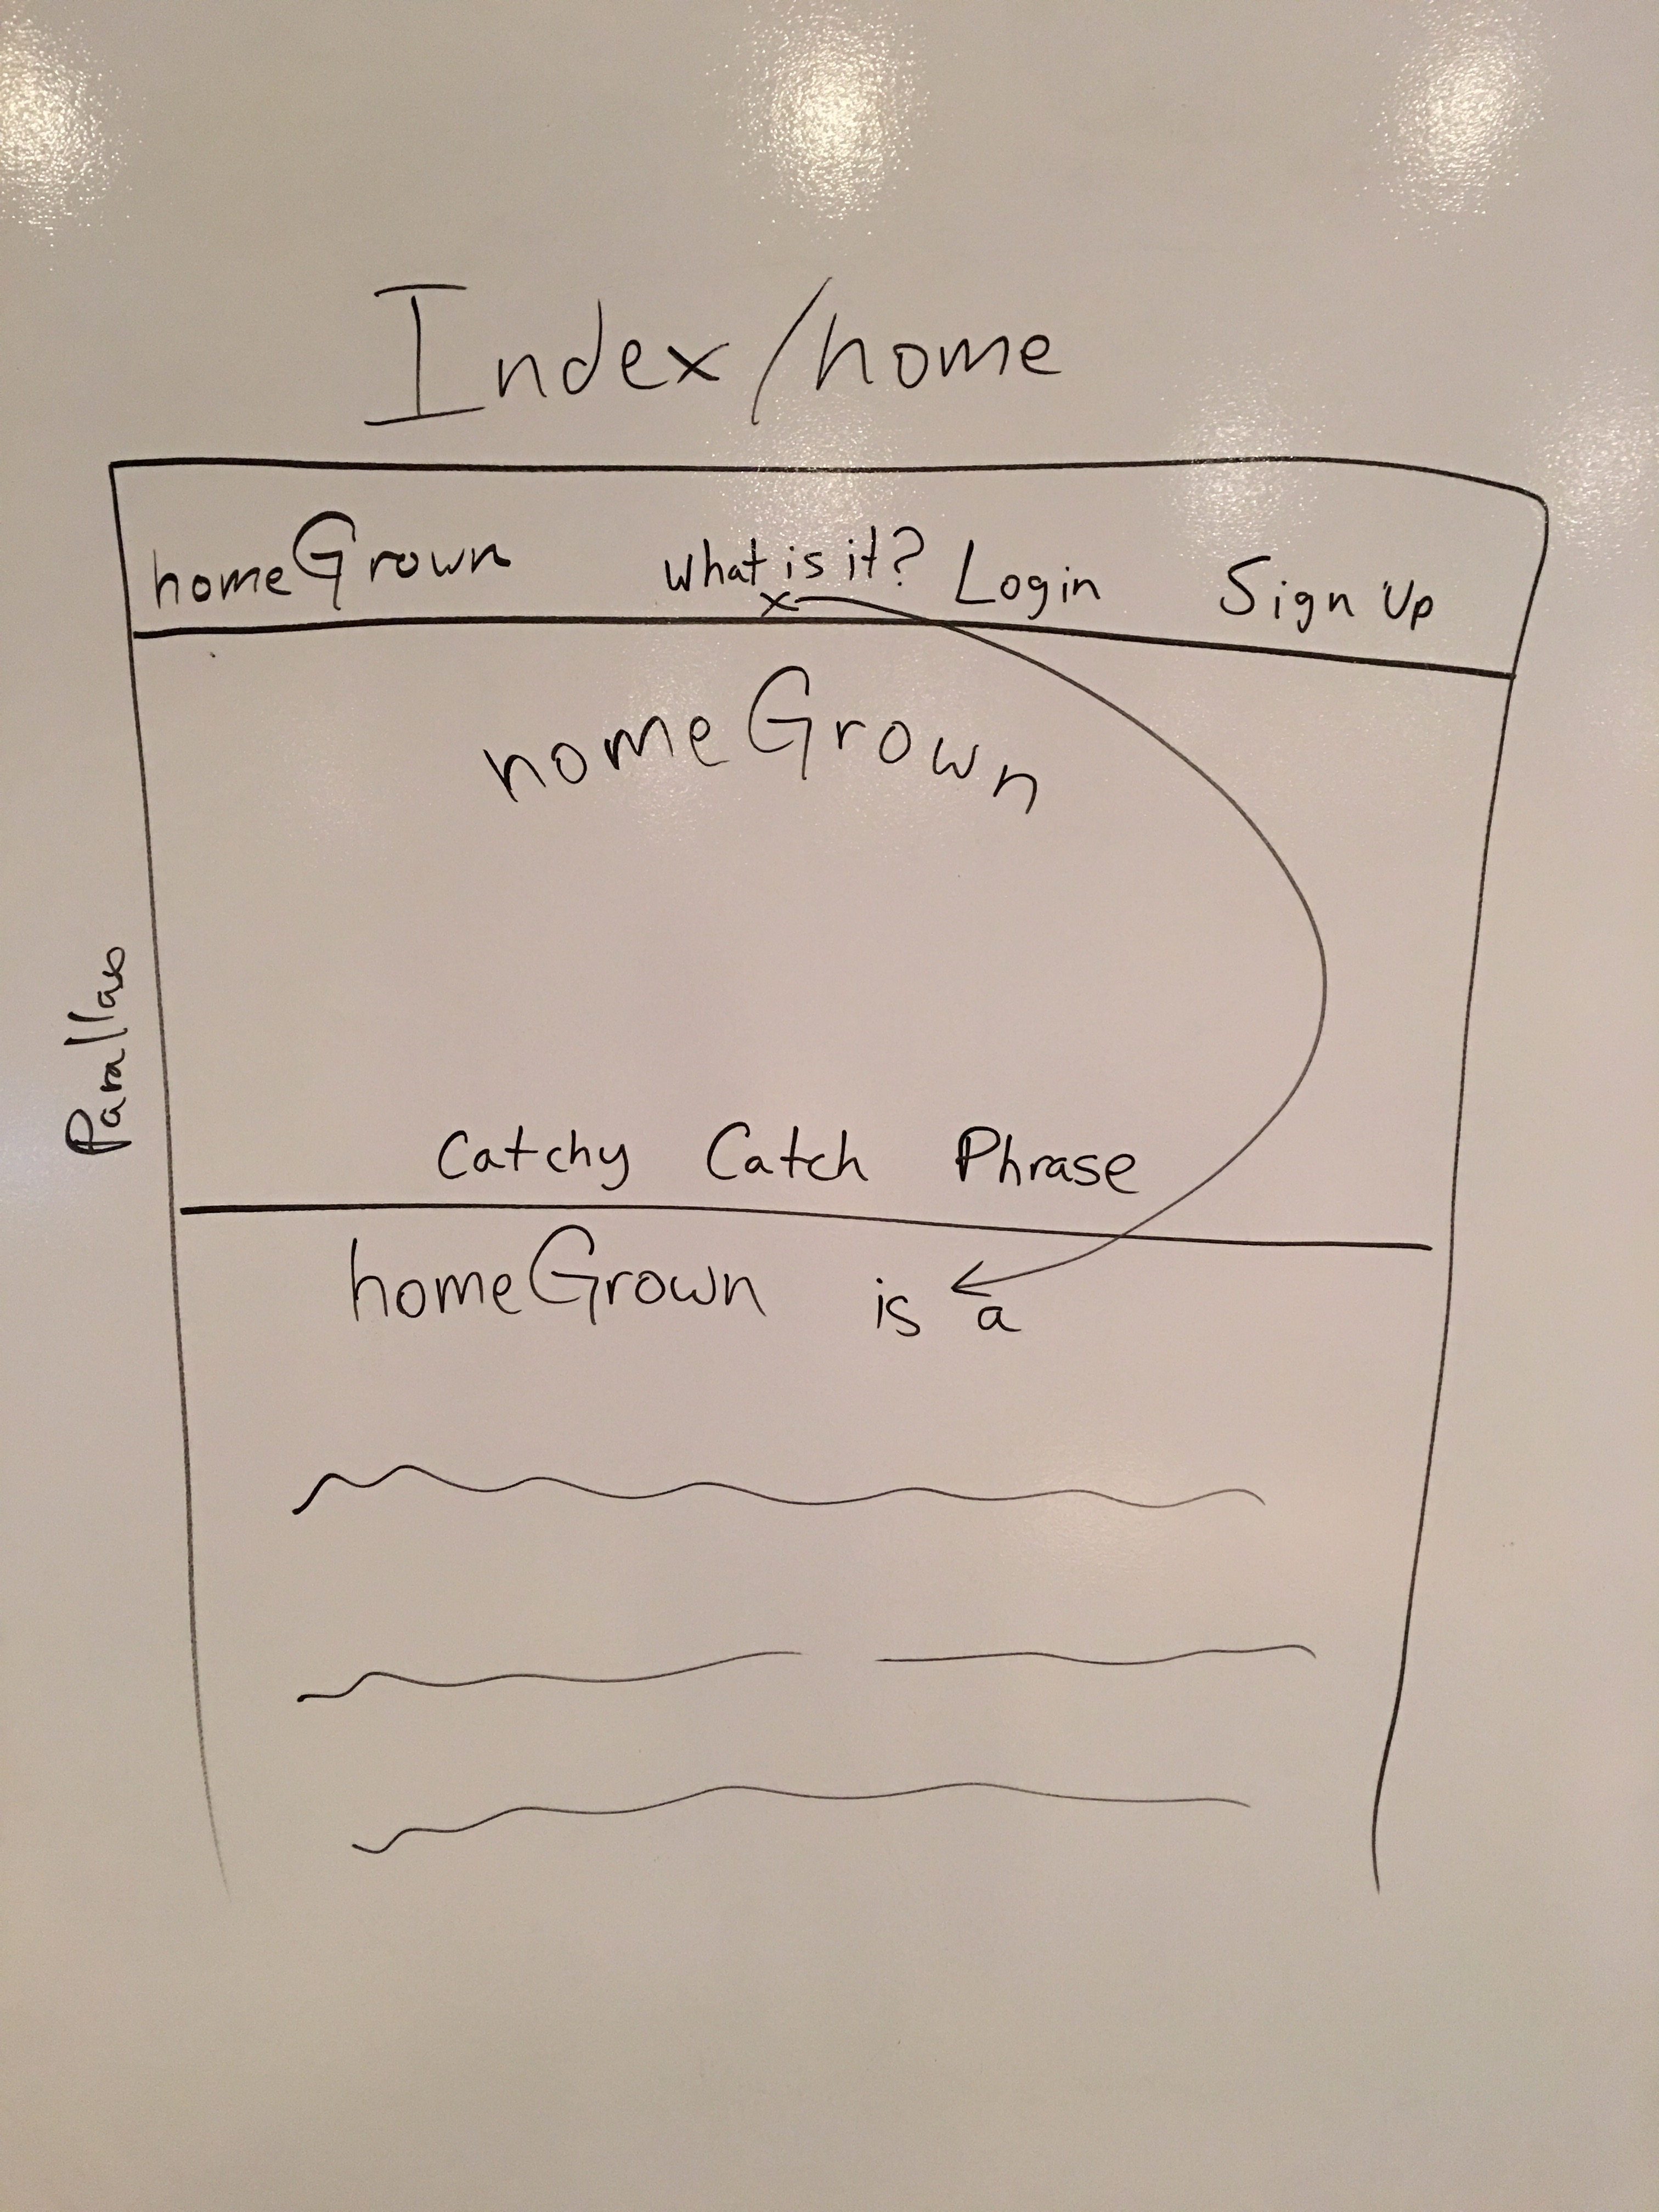 Index/home
homeGrown what is it? Login Sign Up
homeGrown
Parallax
Catchy Catch Phrase
homeGrown is a